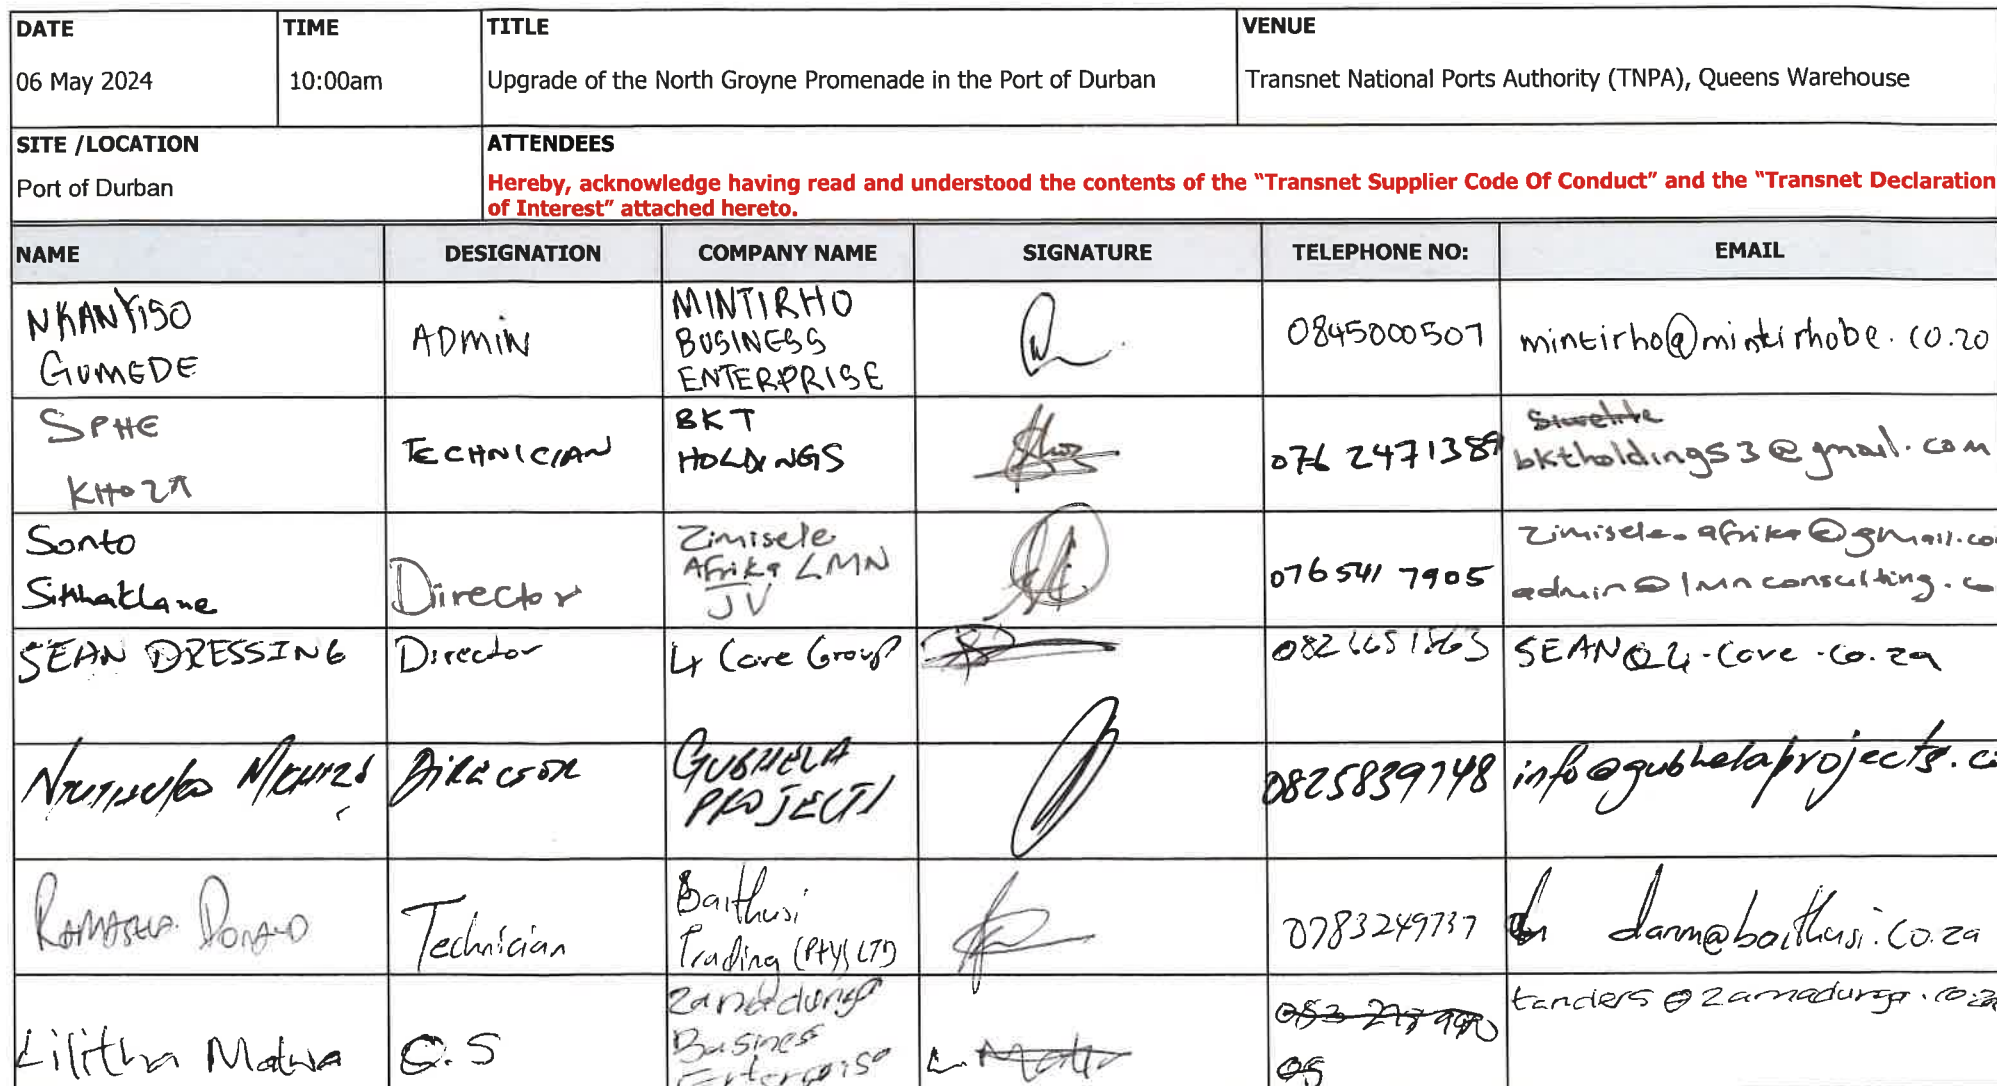 DATE TIME TITLE VENUE
06 May 2024 10:00am Upgrade of the North Groyne Promenade in the Port of Durban Transnet National Ports Authority (TNPA), Queens Warehouse
SITE /LOCATION ATTENDEES
Port of Durban Hereby, acknowledge having read and understood the contents of the “Transnet Supplier Code Of Conduct” and the “Transnet Declaration
of Interest” attached hereto.
NAME DESIGNATION COMPANY NAME SIGNATURE TELEPHONE NO: EMAIL
NKANYISO
GUMEDE
ADMIN
MINTIRHO
BUSINESS
ENTERPRISE
0845000507
mintirho@mintirhobe.co.za
SPHE
KHOZA
TECHNICIAN
BKT
HOLDINGS
076 2471389
bktholdings3@gmail.com
Sonto
Director
Zimisele
Afrika LMN
JV
076 541 7905
zimisele.afrika@gmail.co
admin@lmnconsulting.co
SEAN DRESSING
Director
4 Core Group
SEAN@4-core.co.za
DIRECTOR
GUBHELA
PROJECTS
0825839748
info@gubhelaprojects.c
Technician
Baithusi
Trading (Pty) LTD
0783249737
danm@baithusi.co.za
Lilitha Matwa
Q.S
Zamadunga
Business
Enterprise
tenders@zamadunga.co.za